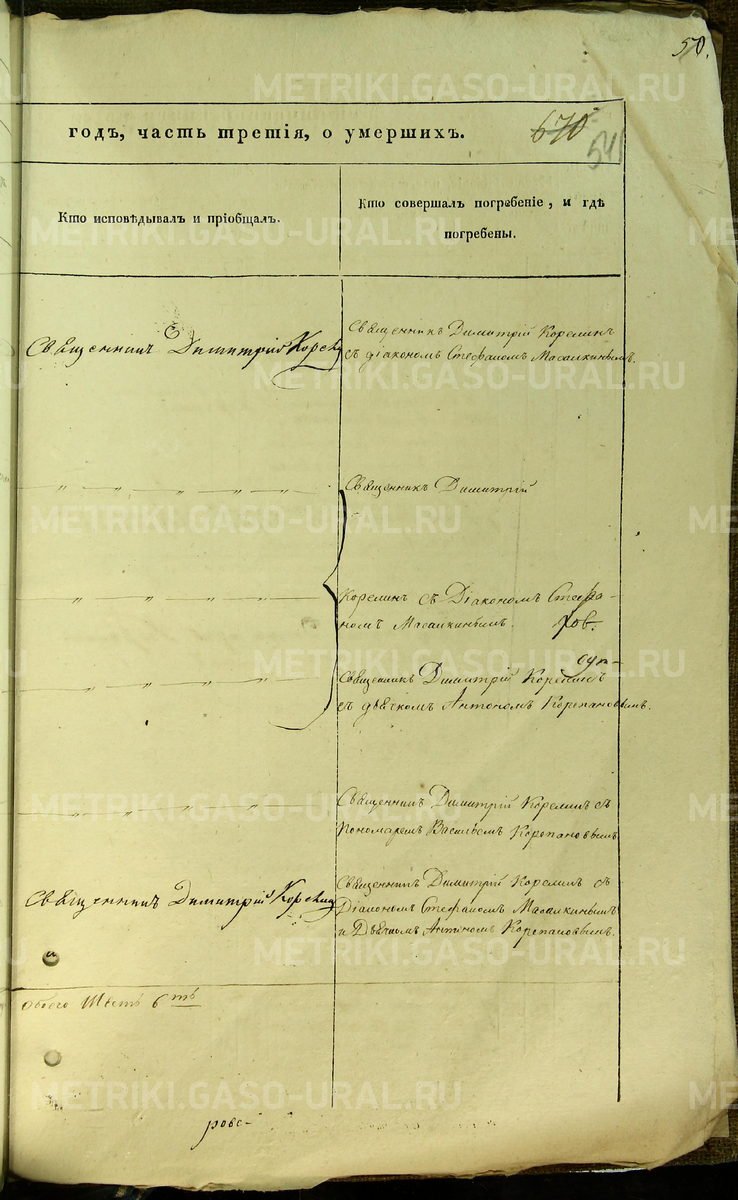 50.
годъ, часть третія, о умершихъ.
670
541
Кто исповѣдывалъ и пріобщалъ.
Кто совершалъ погребеніе, и гдѣ
погребены.
Священникъ Димитрій Корелинъ
Священникъ Димитрій Корелинъ
съ діакономъ Стефаномъ Масалкинымъ.
Священникъ Димитрій
Корелинъ съ Діакономъ Стефа-
номъ Масалкинымъ.
Священникъ Димитрій Корелинъ
съ дьячкомъ Антономъ Корепановымъ.
Священникъ Димитрій Корелинъ съ
Пономаремъ Васильемъ Корепановымъ
Священникъ Димитрій Корелинъ
Священникъ Димитрій Корелинъ съ
Діакономъ Стефаномъ Масалкинымъ
и Дьячкомъ Антономъ Корепановымъ.
Обоего Шесть 6ть
рове-
METRIKI.GASO-URAL.RU